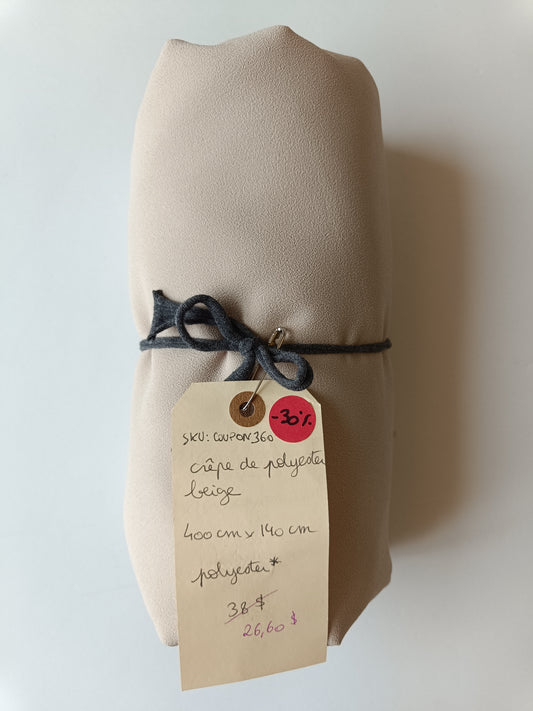 -30%
SKU: COUPON360
crêpe de polyester
beige
400 cm x 140 cm
polyester*
38 $
26,60 $